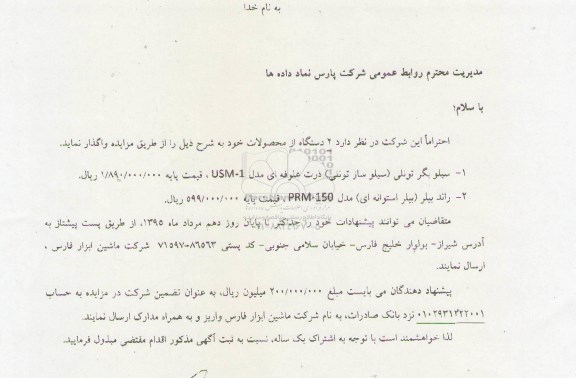 به نام خدا
مدیریت محترم روابط عمومی شرکت پارس نماد داده ها
با سلام؛
احتراماً این شرکت در نظر دارد ۲ دستگاه از محصولات خود به شرح ذیل را از طریق مزایده واگذار نماید.
۱- سیلو بگر تونلی (سیلو ساز تونلی) ذرت علوفه ای مدل USM-1 ، قیمت پایه ۱/۸۹۰/۰۰۰/۰۰۰ ریال.
۲- راند بیلر (بیلر استوانه ای) مدل PRM-150 قیمت پایه ۵۹۹/۰۰۰/۰۰۰ ریال.
متقاضیان می توانند پیشنهادات خود را حداکثر تا پایان روز دهم مرداد ماه ۱۳۹۵، از طریق پست پیشتاز به
آدرس شیراز- بولوار خلیج فارس- خیابان سلامی جنوبی- کد پستی ۸۶۵۶۳-۷۱۵۹۷ شرکت ماشین ابزار فارس ،
ارسال نمایند.
پیشنهاد دهندگان می بایست مبلغ ۲۰۰/۰۰۰/۰۰۰ میلیون ریال، به عنوان تضمین شرکت در مزایده به حساب
۰۱۰۲۹۳۱۳۲۲۰۰۱ نزد بانک صادرات، به نام شرکت ماشین ابزار فارس واریز و به همراه مدارک ارسال نمایند.
لذا خواهشمند است با توجه به اشتراک یک ساله، نسبت به ثبت آگهی مذکور اقدام مقتضی مبذول فرمایید.